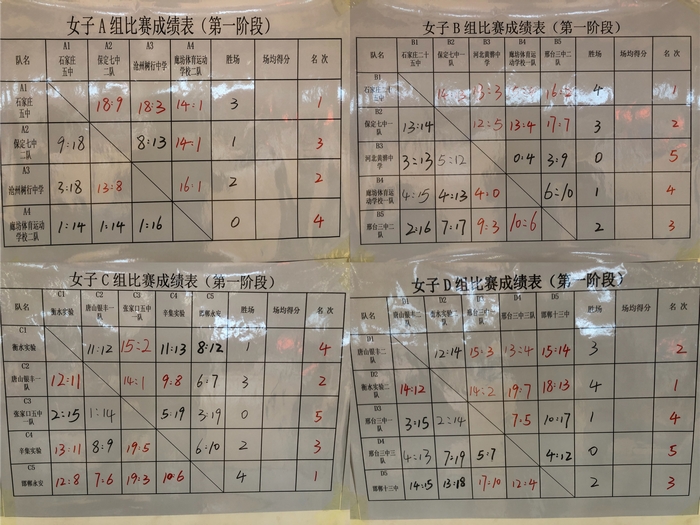 女子A组比赛成绩表（第一阶段）
队名 A1 石家庄五中 A2 保定七中二队 A3 沧州树行中学 A4 廊坊体育运动学校二队 胜场 场均得分 名次
A1 石家庄五中 18:9 18:3 14:1 3 1
A2 保定七中二队 9:18 8:13 14:1 1 3
A3 沧州树行中学 3:18 13:8 16:1 2 2
A4 廊坊体育运动学校二队 1:14 1:14 1:16 0 4
女子B组比赛成绩表（第一阶段）
队名 B1 石家庄二十五中 B2 保定七中一队 B3 河北黄骅中学 B4 廊坊体育运动学校一队 B5 邢台三中二队 胜场 场均得分 名次
B1 石家庄二十五中 4 1
B2 保定七中一队 13:14 12:5 13:4 17:7 3 2
B3 河北黄骅中学 3:13 5:12 0:4 3:9 0 5
B4 廊坊体育运动学校一队 4:15 4:13 4:0 6:10 1 4
B5 邢台三中二队 2:16 7:17 9:3 10:6 2 3
女子C组比赛成绩表（第一阶段）
队名 C1 衡水实验 C2 唐山银丰一队 C3 张家口五中一队 C4 辛集实验 C5 邯郸永安 胜场 场均得分 名次
C1 衡水实验 11:12 15:2 11:13 8:12 1 4
C2 唐山银丰一队 12:11 14:1 9:8 6:7 3 2
C3 张家口五中一队 2:15 1:14 5:19 3:19 0 5
C4 辛集实验 13:11 8:9 19:5 6:10 2 3
C5 邯郸永安 12:8 7:6 19:3 10:6 4 1
女子D组比赛成绩表（第一阶段）
队名 D1 唐山银丰二队 D2 衡水实验二队 D3 邢台三中一队 D4 邢台三中三队 D5 邯郸十三中 胜场 场均得分 名次
D1 唐山银丰二队 12:14 15:3 13:4 15:14 3 2
D2 衡水实验二队 14:12 14:2 19:7 18:13 4 1
D3 邢台三中一队 3:15 2:14 7:5 10:17 1 4
D4 邢台三中三队 4:13 7:19 5:7 4:12 0 5
D5 邯郸十三中 14:15 13:18 17:10 12:4 2 3